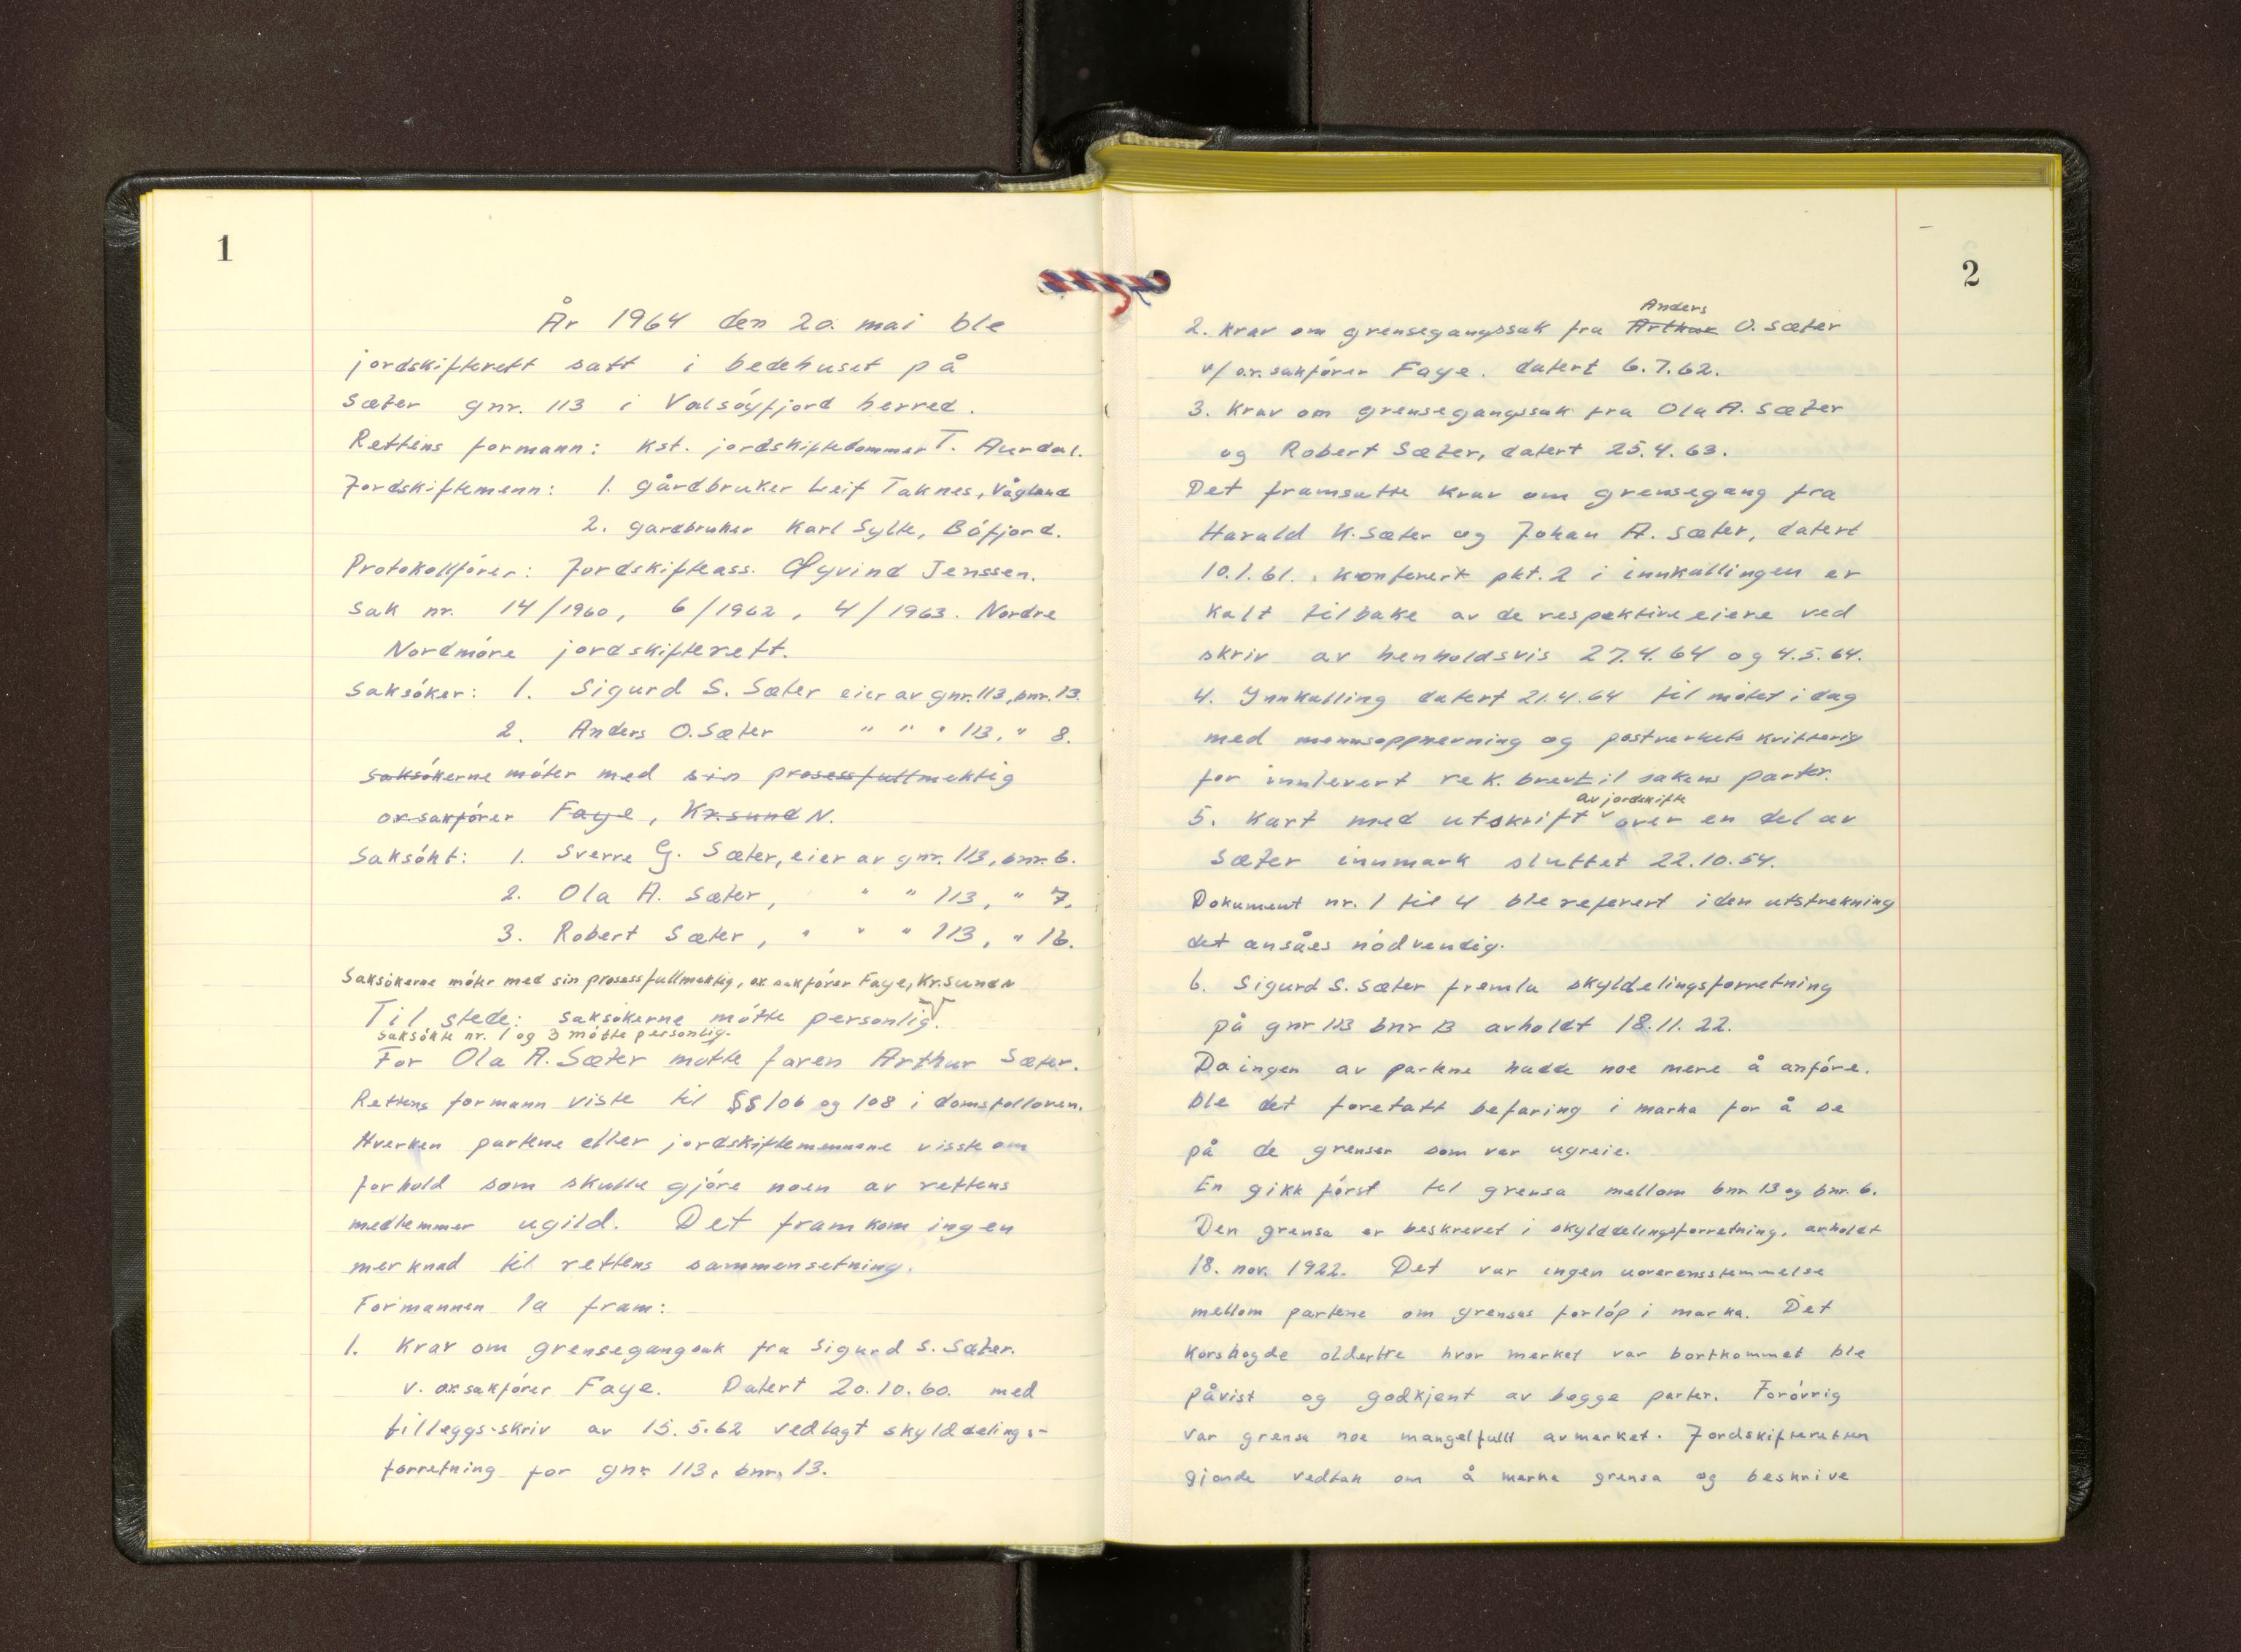 1
År 1964 den 20. mai ble
jordskifterett satt i bedehuset på
Sæter gnr. 113 i Valsøyfjord herred.
Rettens formann: Kst. jordskiftedommer T. Aurdal.
Jordskiftemenn: 1. gårdbruker Leif Taknes, Vågland
2. gardbruker Karl Sylte, Bøfjord.
Protokollfører: Jordskifteass. Øyvind Jenssen.
Sak nr. 14/1960, 6/1962, 4/1963. Nordre
Nordmøre jordskifterett.
Saksøker: 1. Sigurd S. Sæter eier av gnr. 113, bnr. 13.
2. Anders O. Sæter " " " 113, " 8.
Saksøkerne møter med sin prosessfullmektig
o.r.sakfører Faye, Kr.sund N.
Saksøkt: 1. Sverre G. Sæter, eier av gnr. 113, bnr. 6.
2. Ola A. Sæter, " " 113, " 7.
3. Robert Sæter, " " " 113, " 16.
Saksøkerne møter med sin prosessfullmektig, o.r. sakfører Faye, Kr.sund N
Til stede: saksøkerne møtte personlig.
Saksøkte nr. 1 og 3 møtte personlig.
For Ola A. Sæter møtte faren Arthur Sæter.
Rettens formann viste til §§ 106 og 108 i domstolloven.
Hverken partene eller jordskiftemennene visste om
forhold som skulle gjøre noen av rettens
medlemmer ugild. Det framkom ingen
merknad til rettens sammensetning.
Formannen la fram:
1. Krav om grensegangsak fra Sigurd S. Sæter.
v. o.r.sakfører Faye. Datert 20.10.60. med
tilleggs-skriv av 15.5.62 vedlagt skylddelings-
forretning for gnr. 113, bnr. 13.
2
Anders
2. Krav om grensegangssak fra Arthur O. Sæter
v/ o.r.sakfører Faye. datert 6.7.62.
3. Krav om grensegangssak fra Ola A. Sæter
og Robert Sæter, datert 25.4.63.
Det framsatte krav om grensegang fra
Harald K. Sæter og Johan A. Sæter, datert
10.1.61. konferert pkt. 2 i innkallingen er
kalt tilbake av de respektive eiere ved
skriv av henholdsvis 27.4.64 og 4.5.64.
4. Innkalling datert 21.4.64 til møtet i dag
med mannsoppnevning og postverkets kvittering
for innlevert rek. brev til sakens parter.
av jordskifte
5. Kart med utskrift over en del av
Sæter innmark sluttet 22.10.54.
Dokument nr. 1 til 4 ble referert i den utstrekning
det ansåes nødvendig.
6. Sigurd S. Sæter fremla skyldelingsforretning
på gnr 113 bnr 13 avholdt 18.11.22.
Da ingen av partene hadde noe mere å anføre.
ble det foretatt befaring i marka for å se
på de grenser som var ugreie.
En gikk først til grensa mellom bnr. 13 og bnr. 6.
Den grensa er beskrevet i skylddelingsforretning, avholdt
18. nov. 1922. Det var ingen uoverensstemmelse
mellom partene om grenses forløp i marka. Det
korshogde oldertre hvor merket var bortkommet ble
påvist og godkjent av begge parter. Forøvrig
var grensa noe mangelfullt avmerket. Jordskifteretten
gjorde vedtak om å merke grensa og beskrive